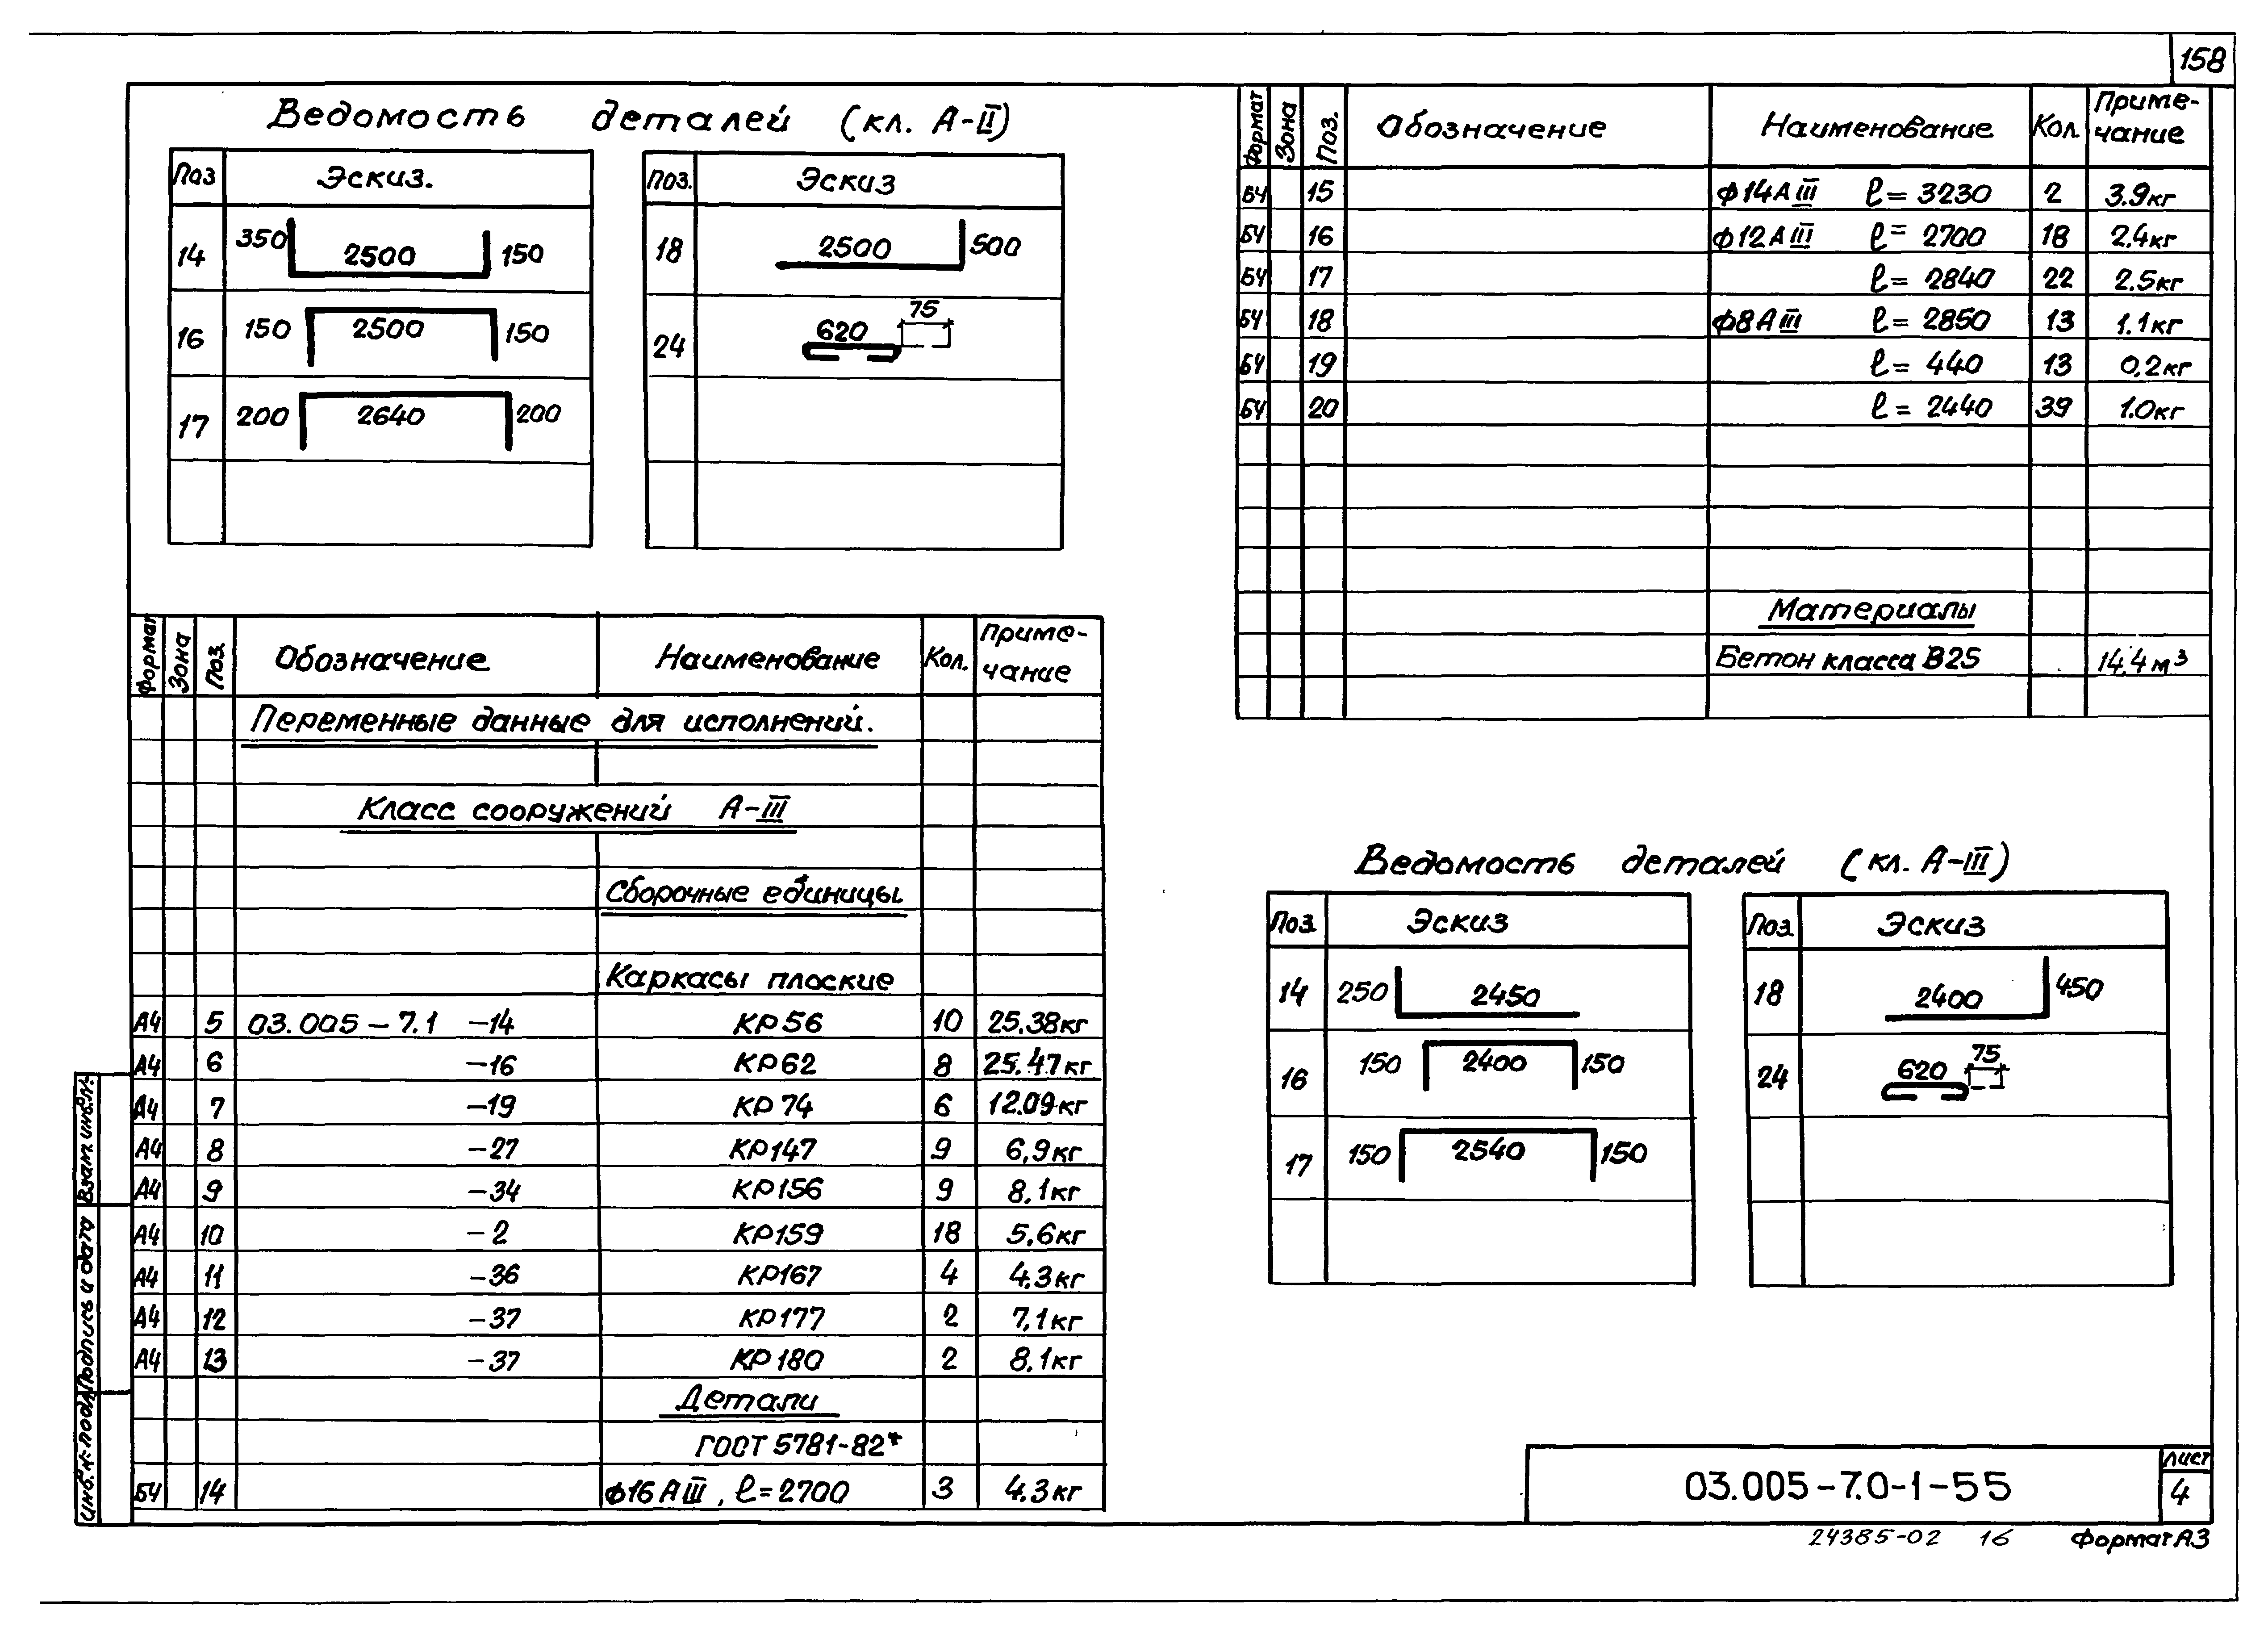 158
Ведомость деталей (кл. А-II)
Поз Эскиз.
14 350 2500 150
16 150 2500 150
17 200 2640 200
Поз. Эскиз
18 2500 500
24 620 75
Формат Зона Поз. Обозначение Наименование Кол. Приме-
чание
Переменные данные для исполнений.
Класс сооружений А-III
Сборочные единицы
Каркасы плоские
А4 5 03.005-7.1 -14 КР56 10 25.38кг
А4 6 -16 КР62 8 25.47кг
А4 7 -19 КР74 6 12.09кг
А4 8 -27 КР147 9 6,9кг
А4 9 -34 КР156 9 8.1кг
А4 10 -2 КР159 18 5,6кг
А4 11 -36 КР167 4 4.3кг
А4 12 -37 КР177 2 7,1кг
А4 13 -37 КР180 2 8.1кг
Детали
ГОСТ 5781-82*
БЧ 14 ф16АIII, ℓ=2700 3 4.3кг
Формат Зона Поз. Обозначение Наименование Кол. Приме-
чание
БЧ 15 ф14АIII ℓ= 3230 2 3.9кг
БЧ 16 ф12АIII ℓ= 2700 18 2.4кг
БЧ 17 ℓ= 2840 22 2.5кг
БЧ 18 ф8АIII ℓ= 2850 13 1.1кг
БЧ 19 ℓ= 440 13 0,2кг
БЧ 20 ℓ= 2440 39 1.0кг
Материалы
Бетон класса В25 14,4 м³
Ведомость деталей (кл. А-III)
Поз. Эскиз
14 250 2450
16 150 2400 150
17 150 2540 150
Поз. Эскиз
18 2400 450
24 620 75
Взам. инв.N:
Подпись и дата
Инв.N:подл.
03.005-7.0-1-55
лист
4
24385-02 16 Формат А3